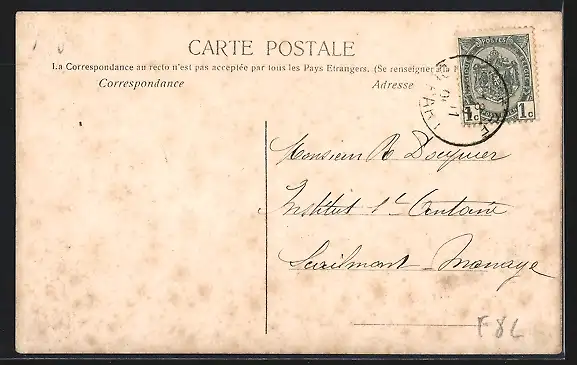 CARTE POSTALE
La Correspondance au recto n'est pas acceptée par tous les Pays Etrangers. (Se renseigner à la
Correspondance
Adresse
POSTES
1c 1c
Monsieur R Douguier
Institut St Antoine
Scailmont-Manage
F 8L